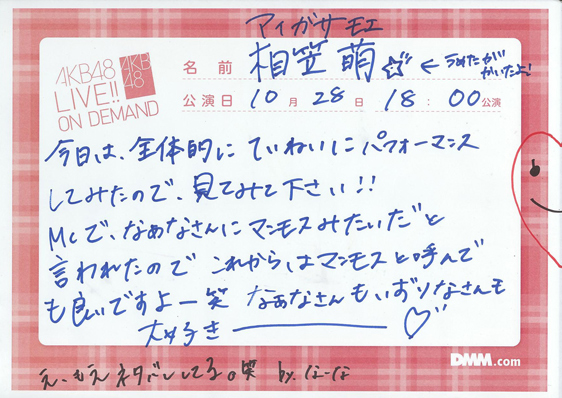 アイガサ モエ
AKB48
LIVE!!
ON DEMAND
AKB
48
名前 相笠 萌 ☆ ← うめたが
かいたよ!
公演日 10月 28日 18:00公演
今日は、全体的に ていねいに パフォーマンス
してみたので、見てみて下さい!!
MCで、なぁなさんに マンモスみたいだと
言われたので これからはマンモスと呼んで
も良いですよー笑 なぁなさんも いずりなさんも
大好き ♡
DMM.com
え、もえ ネタバレしてる。笑 by. なーな